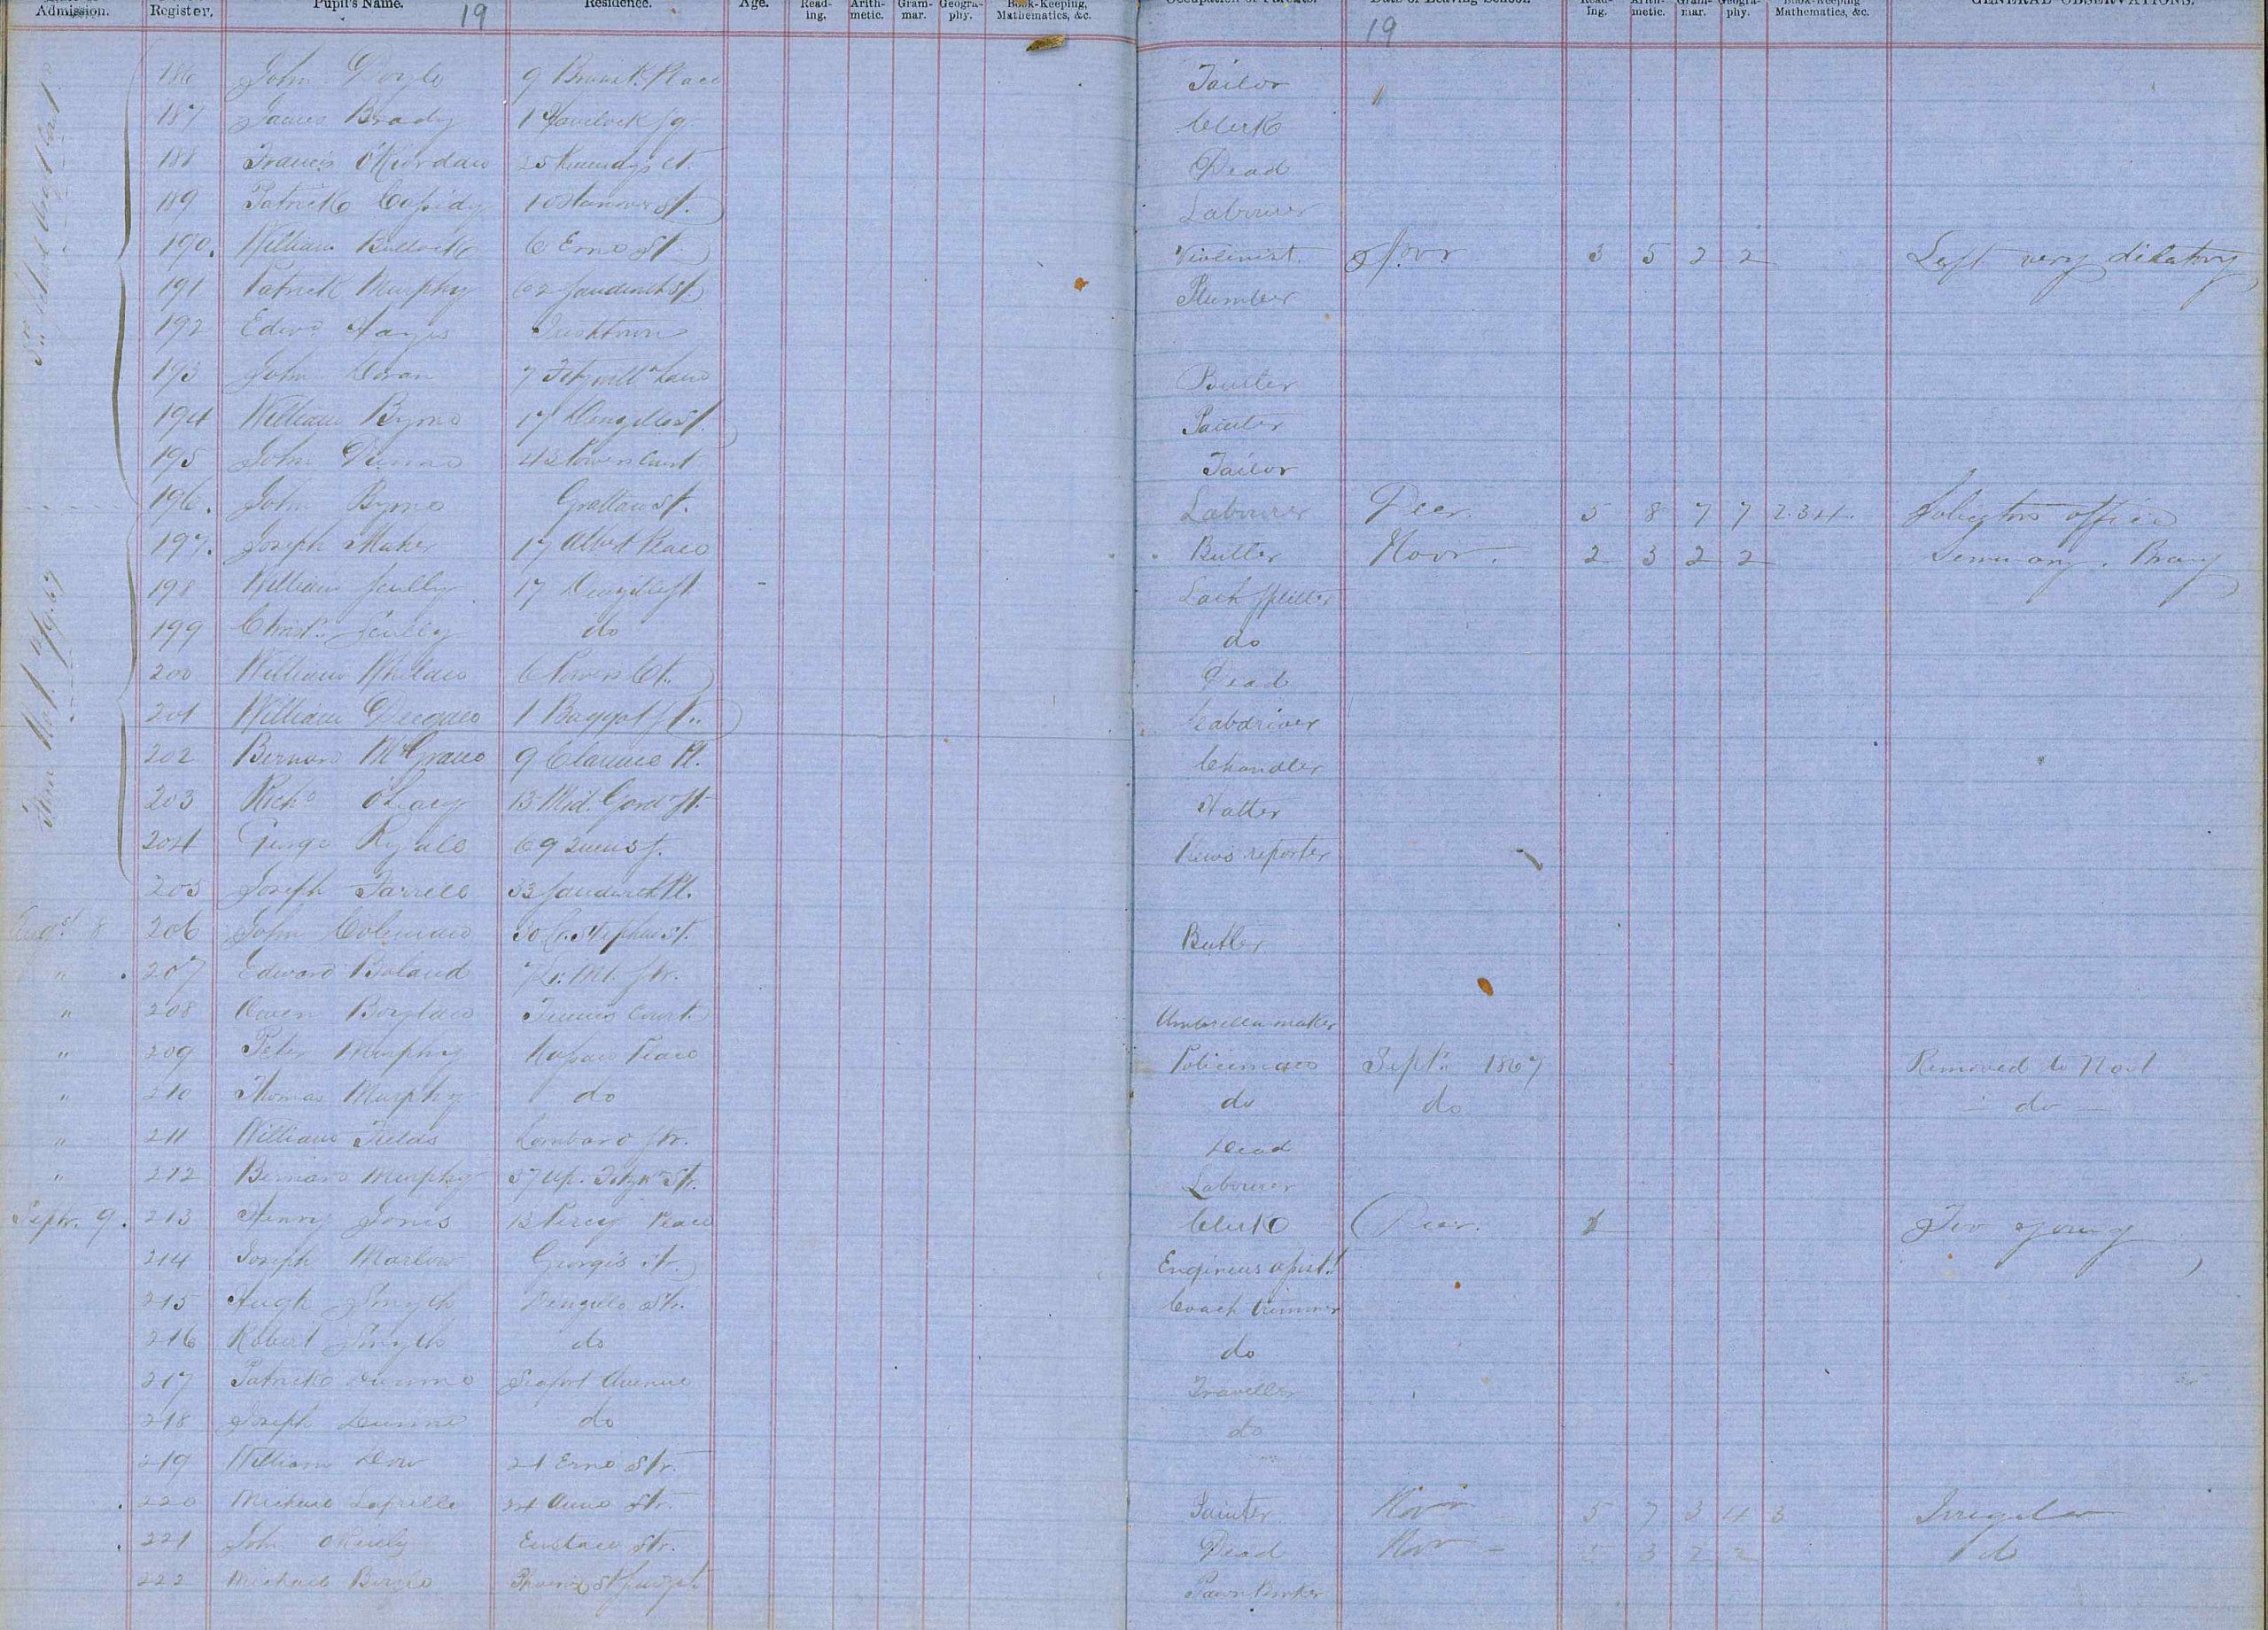 Admission. Register. Pupil's Name. 19 Residence. Age. Read-ing. Arith-metic. Gram-mar. Geogra-phy. Book-Keeping, Mathematics, &c. Occupation of Parents. Date of Leaving School. 19 Read-ing. Arith-metic. Gram-mar. Geogra-phy. Book-Keeping Mathematics, &c. GENERAL OBSERVATIONS.
186 John Doyle 9 Place Tailor
187 James Brady 1 Havelock Sq Clerk
188 Francis O'Riordan 25 Kennedy's Ct. Dead
189 Patrick Cassidy 10 Hanover St. Labourer
190. William Bullock 6 Erne St. Violinist 3 5 2 2 Left very dilatory
191 Patrick Murphy 62 Sandwith St. Plumber
192 Edwd. Hayes Irishtown
193 John Doran 7 Fitzwill Lane Butler
194 William Byrne 17 Denzille St. Painter
195 John Dunne 43 Power's Court Tailor
196. John Byrne Grattan St. Labourer Decr. 5 8 7 7 2.3.4. office
197. Joseph Maher 17 Albert Place Butler Novr. 2 3 2 2 Bray
198 William Scully 17 Denzille St Lath splitter
199 Christ. Scully do do
200 William 6 Powers Ct. Dead
201 William Deegan 1 Baggot St. Cabdriver
202 Bernard McGrane 9 Clarence Pl. Chandler
203 Richd O'Leary 13 Mid. Gard. St. Hatter
204 George Ryall 69 Queen St. News reporter
205 Joseph Farrell 33 Sandwith Pl.
Augst. 8 206 John Coleman 30 Gr. Stephen St. Butler
" . 207 Edward Boland Mt. Str.
" 208 Owen Boylan Tennis Court Umbrella maker
" 209 Peter Murphy Place Policeman Septr. 1867 Removed to
" 210 Thomas Murphy do do do - do -
" 211 William Fields Lombard Str. Dead
" 212 Bernard Murphy 37 Up. Fitzwm Str. Labourer
Septr. 9. 213 Henry Jones 13 Percy Place Clerk Decr. 1 Too young
214 Joseph Marlow George's St. Engineers assist.
215 Hugh Smyth Denzille Str. Coach trimmer
216 Robert Smyth do do
217 Patrick Dunne Seafort Avenue Traveller
218 Joseph Dunne do do
219 William Dow 21 Erne Str.
. 220 Michael 24 Anne Str. Painter Novr 5 7 3 4 3 Irregular
. 221 John O'Reily Eustace Str. Dead Novr - 5 3 2 2 do
222 Michael Phoenix St Pawn Broker